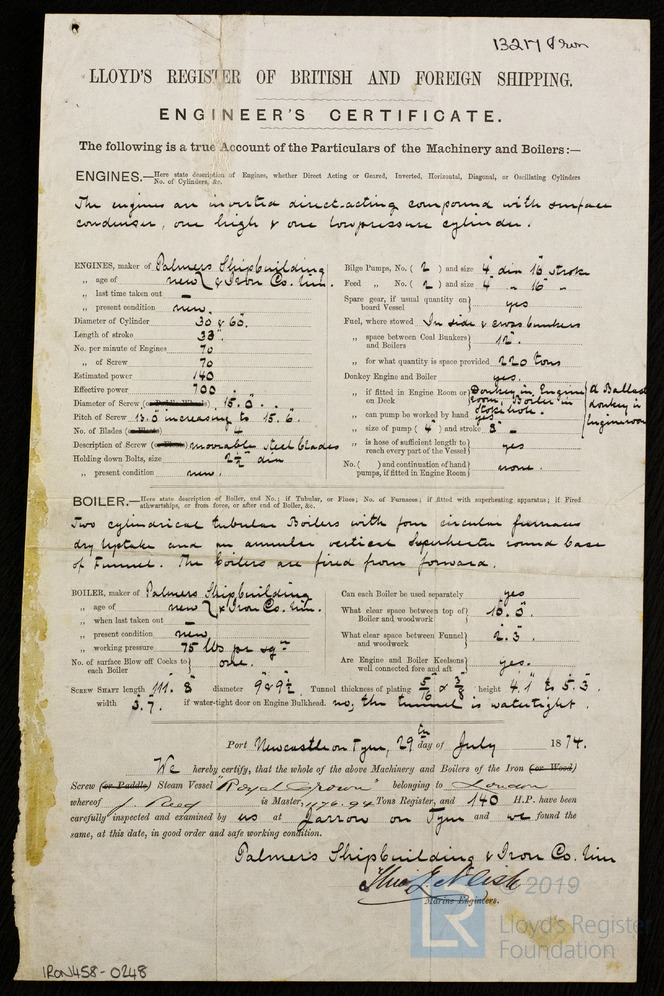 13217 Iron
LLOYD'S REGISTER OF BRITISH AND FOREIGN SHIPPING.
ENGINEER'S CERTIFICATE.
The following is a true Account of the Particulars of the Machinery and Boilers:—
ENGINES.—Here state description of Engines, whether Direct Acting or Geared, Inverted, Horizontal, Diagonal, or Oscillating Cylinders
No. of Cylinders, &c.
The engines are inverted direct-acting compound with surface
condenser, one high & one low pressure cylinder.
ENGINES, maker of Palmers Shipbuilding
„ age of new & Iron Co. Lim.
„ last time taken out
„ present condition new.
Diameter of Cylinder 30 & 60.
Length of stroke 33"
No. per minute of Engines 70
„ of Screw 70
Estimated power 140
Effective power 700
Diameter of Screw (or Paddle Wheel) 15.0
Pitch of Screw 13.0 increasing to 15.6.
No. of Blades (or Floats) 4
Description of Screw (or Floats) movable steel blades
Holding down Bolts, size 2½" dia
„ present condition new.
Bilge Pumps, No. ( 2 ) and size 4" dia 16" stroke
Feed „ No. ( 2 ) and size 4" „ 16" „
Spare gear, if usual quantity on board Vessel yes
Fuel, where stowed In side & cross bunkers
„ space between Coal Bunkers and Boilers 12".
„ for what quantity is space provided 220 tons
Donkey Engine and Boiler yes.
„ if fitted in Engine Room or on Deck Donkey in Engine room, Boiler in Stokehole. A Ballast donkey in Engineroom
„ can pump be worked by hand yes
„ size of pump ( 4" ) and stroke 8"
„ is hose of sufficient length to reach every part of the Vessel yes
No. ( ) and continuation of hand pumps, if fitted in Engine Room none.
BOILER.—Here state description of Boiler, and No.; if Tubular, or Flues; No. of Furnaces; if fitted with superheating apparatus; if Fired
athwartships, or from force, or after end of Boiler, &c.
Two cylindrical tubular Boilers with four circular furnaces
dry uptake and an annular vertical Superheater round base
of Funnel. The Boilers are fired from forward.
BOILER, maker of Palmers Shipbuilding
„ age of new & Iron Co. Lim.
„ when last taken out
„ present condition new
„ working pressure 75 lbs per sq"
No. of surface Blow off Cocks to each Boiler one.
Can each Boiler be used separately yes
What clear space between top of Boiler and woodwork 10.0.
What clear space between Funnel and woodwork 2.3.
Are Engine and Boiler Keelsons well connected fore and aft yes.
SCREW SHAFT length 111.8 diameter 9&9½ Tunnel thickness of plating 5/16 & 3/8 height 4.1 to 5.3
width 3.7. if water-tight door on Engine Bulkhead. no, the tunnel is watertight.
Port Newcastle on Tyne, 29th day of July 1874.
We hereby certify, that the whole of the above Machinery and Boilers of the Iron (or Wood)
Screw (or Paddle) Steam Vessel "Royal Crown" belonging to London
whereof J. Reed is Master, Tons Register, and 140 H.P. have been
carefully inspected and examined by us at Jarrow on Tyne and we found the
same, at this date, in good order and safe working condition.
Palmer's Shipbuilding & Iron Co. Lim
Marine Engineers.
LR © 2019
Lloyd's Register
Foundation
IRON458-0248